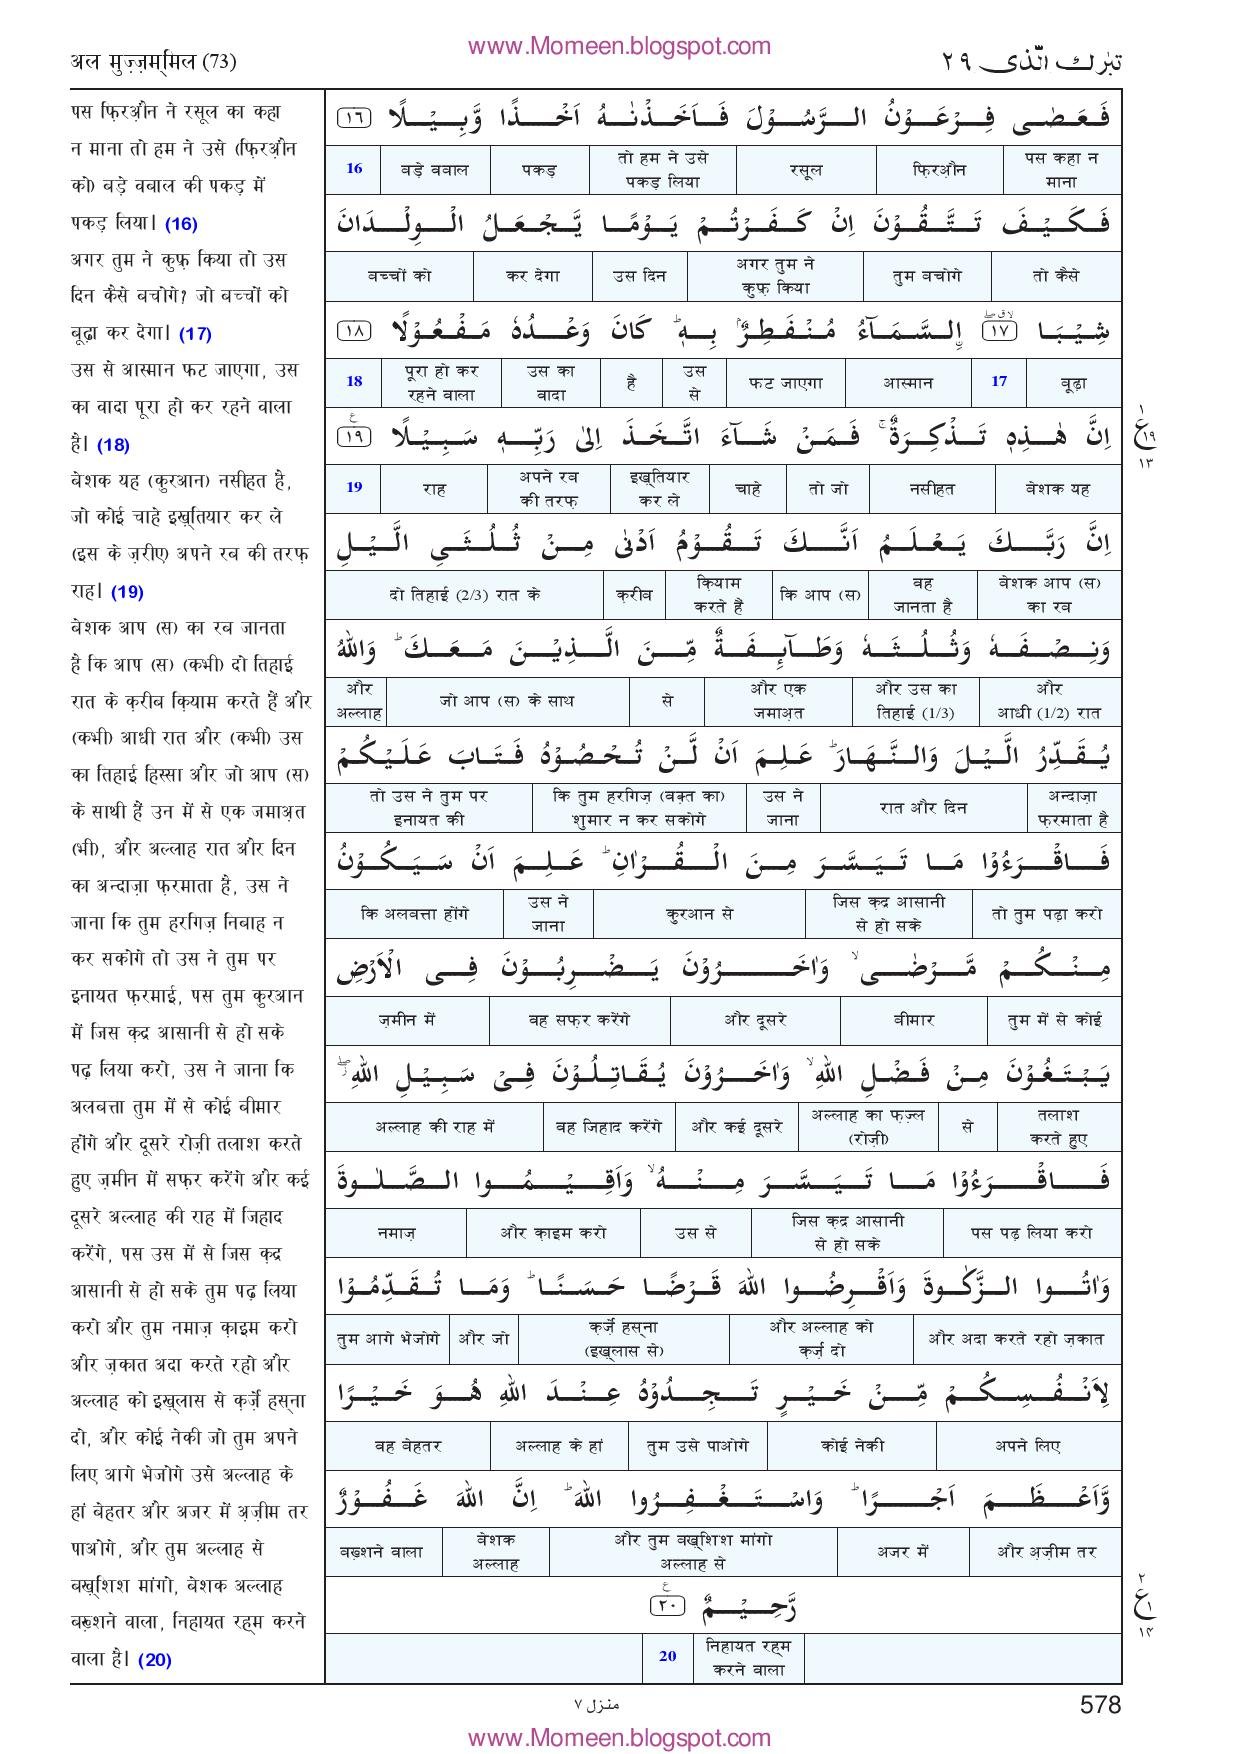 www.Momeen.blogspot.com
अल मुज़्ज़म्मिल (73)
تبٰرك الّذى ٢٩
पस फ़िरऔ़न ने रसूल का कहा
न माना तो हम ने उसे (फ़िरऔ़न
को) बड़े वबाल की पकड़ में
पकड़ लिया। (16)
अगर तुम ने कुफ़्र किया तो उस
दिन कैसे बचोगे? जो बच्चों को
बूढ़ा कर देगा। (17)
उस से आस्मान फट जाएगा, उस
का वादा पूरा हो कर रहने वाला
है। (18)
बेशक यह (क़ुरआन) नसीहत है,
जो कोई चाहे इख़्तियार कर ले
(इस के ज़रीए) अपने रब की तरफ़
राह। (19)
बेशक आप (स) का रब जानता
है कि आप (स) (कभी) दो तिहाई
रात के क़रीब क़ियाम करते हैं और
(कभी) आधी रात और (कभी) उस
का तिहाई हिस्सा और जो आप (स)
के साथी हैं उन में से एक जमाअ़त
(भी), और अल्लाह रात और दिन
का अन्दाज़ा फ़रमाता है, उस ने
जाना कि तुम हरगिज़ निबाह न
कर सकोगे तो उस ने तुम पर
इनायत फ़रमाई, पस तुम क़ुरआन
में जिस क़द्र आसानी से हो सके
पढ़ लिया करो, उस ने जाना कि
अलबत्ता तुम में से कोई बीमार
होंगे और दूसरे रोज़ी तलाश करते
हुए ज़मीन में सफ़र करेंगे और कई
दूसरे अल्लाह की राह में जिहाद
करेंगे, पस उस में से जिस क़द्र
आसानी से हो सके तुम पढ़ लिया
करो और तुम नमाज़ क़ाइम करो
और ज़कात अदा करते रहो और
अल्लाह को इख़्लास से क़र्ज़े हस्ना
दो, और कोई नेकी जो तुम अपने
लिए आगे भेजोगे उसे अल्लाह के
हां बेहतर और अजर में अज़ीम तर
पाओगे, और तुम अल्लाह से
बख़्शिश मांगो, बेशक अल्लाह
बख़्शने वाला, निहायत रह्म करने
वाला है। (20)
فَعَصٰى فِرْعَوْنُ الرَّسُوْلَ فَاَخَذْنٰهُ اَخْذًا وَّبِيْلًا ١٦
पस कहा न माना | फ़िरऔ़न | रसूल | तो हम ने उसे पकड़ लिया | पकड़ | बड़े वबाल | 16
فَكَيْفَ تَتَّقُوْنَ اِنْ كَفَرْتُمْ يَوْمًا يَّجْعَلُ الْوِلْدَانَ
तो कैसे | तुम बचोगे | अगर तुम ने कुफ़्र किया | उस दिन | कर देगा | बच्चों को
شِيْبَا ١٧ اِلسَّمَآءُ مُنْفَطِرٌۢ بِهٖ ؕ كَانَ وَعْدُهٗ مَفْعُوْلًا ١٨
बूढ़ा | 17 | आस्मान | फट जाएगा | उस से | है | उस का वादा | पूरा हो कर रहने वाला | 18
اِنَّ هٰذِهٖ تَذْكِرَةٌ ۚ فَمَنْ شَآءَ اتَّخَذَ اِلٰى رَبِّهٖ سَبِيْلًا ١٩
बेशक यह | नसीहत | तो जो | चाहे | इख़्तियार कर ले | अपने रब की तरफ़ | राह | 19
اِنَّ رَبَّكَ يَعْلَمُ اَنَّكَ تَقُوْمُ اَدْنٰى مِنْ ثُلُثَىِ الَّيْلِ
बेशक आप (स) का रब | वह जानता है | कि आप (स) | क़ियाम करते हैं | क़रीब | दो तिहाई (2/3) रात के
وَنِصْفَهٗ وَثُلُثَهٗ وَطَآئِفَةٌ مِّنَ الَّذِيْنَ مَعَكَ ؕ وَاللّٰهُ
और आधी (1/2) रात | और उस का तिहाई (1/3) | और एक जमाअ़त | से | जो आप (स) के साथ | और अल्लाह
يُقَدِّرُ الَّيْلَ وَالنَّهَارَ ؕ عَلِمَ اَنْ لَّنْ تُحْصُوْهُ فَتَابَ عَلَيْكُمْ
अन्दाज़ा फ़रमाता है | रात और दिन | उस ने जाना | कि तुम हरगिज़ (वक़्त का) शुमार न कर सकोगे | तो उस ने तुम पर इनायत की
فَاقْرَءُوْا مَا تَيَسَّرَ مِنَ الْقُرْاٰنِ ؕ عَلِمَ اَنْ سَيَكُوْنُ
तो तुम पढ़ा करो | जिस क़द्र आसानी से हो सके | क़ुरआन से | उस ने जाना | कि अलबत्ता होंगे
مِنْكُمْ مَّرْضٰى ۙ وَاٰخَرُوْنَ يَضْرِبُوْنَ فِى الْاَرْضِ
तुम में से कोई | बीमार | और दूसरे | वह सफ़र करेंगे | ज़मीन में
يَبْتَغُوْنَ مِنْ فَضْلِ اللّٰهِ ۙ وَاٰخَرُوْنَ يُقَاتِلُوْنَ فِىْ سَبِيْلِ اللّٰهِ ۖ
तलाश करते हुए | से | अल्लाह का फ़ज़्ल (रोज़ी) | और कई दूसरे | वह जिहाद करेंगे | अल्लाह की राह में
فَاقْرَءُوْا مَا تَيَسَّرَ مِنْهُ ۙ وَاَقِيْمُوا الصَّلٰوةَ
पस पढ़ लिया करो | जिस क़द्र आसानी से हो सके | उस से | और क़ाइम करो | नमाज़
وَاٰتُوا الزَّكٰوةَ وَاَقْرِضُوا اللّٰهَ قَرْضًا حَسَنًا ؕ وَمَا تُقَدِّمُوْا
और अदा करते रहो ज़कात | और अल्लाह को क़र्ज़ दो | क़र्ज़े हस्ना (इख़्लास से) | और जो | तुम आगे भेजोगे
لِاَنْفُسِكُمْ مِّنْ خَيْرٍ تَجِدُوْهُ عِنْدَ اللّٰهِ هُوَ خَيْرًا
अपने लिए | कोई नेकी | तुम उसे पाओगे | अल्लाह के हां | वह बेहतर
وَّاَعْظَمَ اَجْرًا ؕ وَاسْتَغْفِرُوا اللّٰهَ ؕ اِنَّ اللّٰهَ غَفُوْرٌ
और अज़ीम तर | अजर में | और तुम बख़्शिश मांगो अल्लाह से | बेशक अल्लाह | बख़्शने वाला
رَّحِيْمٌ ٢٠
निहायत रह्म करने वाला | 20
١
ع ١٩
١٣
٢
ع ١
١٤
منزل ٧
578
www.Momeen.blogspot.com